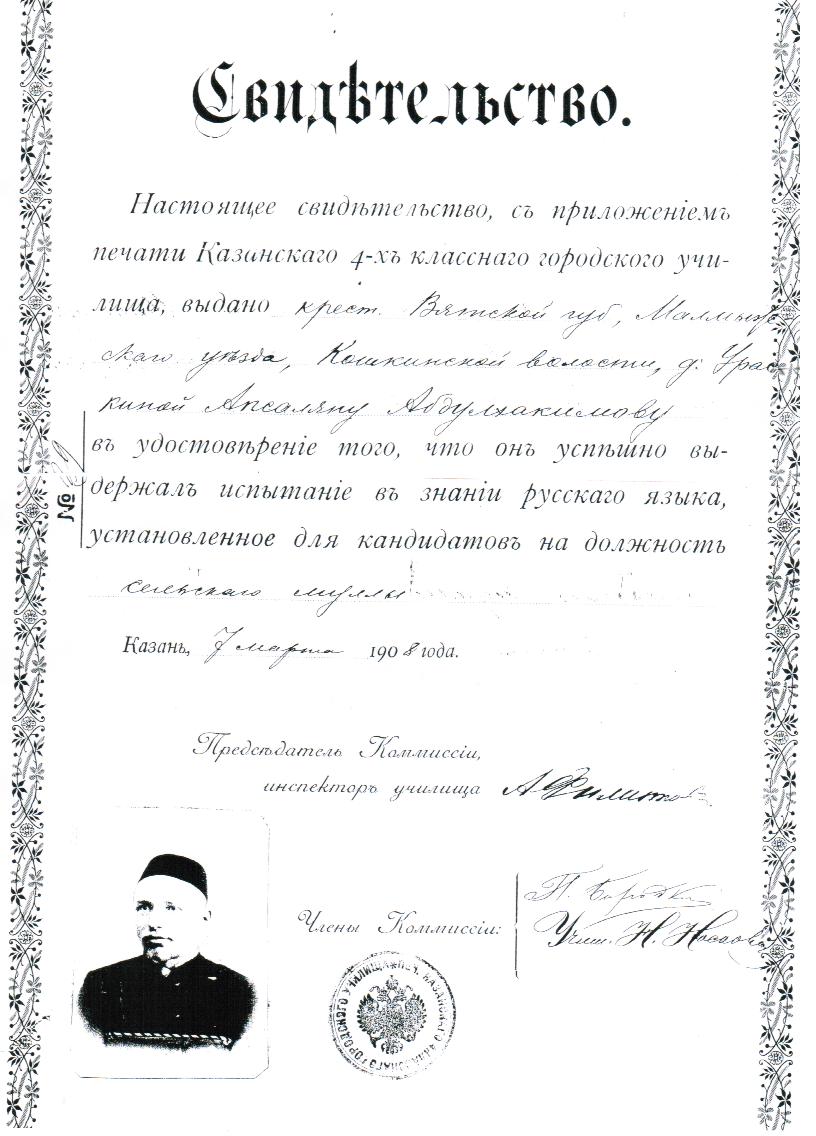 Свидѣтельство.
Настоящее свидѣтельство, съ приложеніемъ
печати Казанскаго 4-хъ класснаго городского учи-
лища, выдано крест. Вятской губ, Малмыж-
скаго уѣзда, Кошкинской волости, д. Урас-
киной Апсаляму Абдулхакимову
въ удостовѣреніе того, что онъ успѣшно вы-
держалъ испытаніе въ знаніи русскаго языка,
установленное для кандидатовъ на должность
сельскаго муллы
№
Казань, 7 марта 1908 года.
Предсѣдатель Коммиссіи,
инспекторъ училища А
Члены Коммиссіи:
П.
Учит. Н.
ПЕЧ. КАЗАНСКАГО 4 КЛАСНАГО ГОРОДСКОГО УЧИЛИЩА